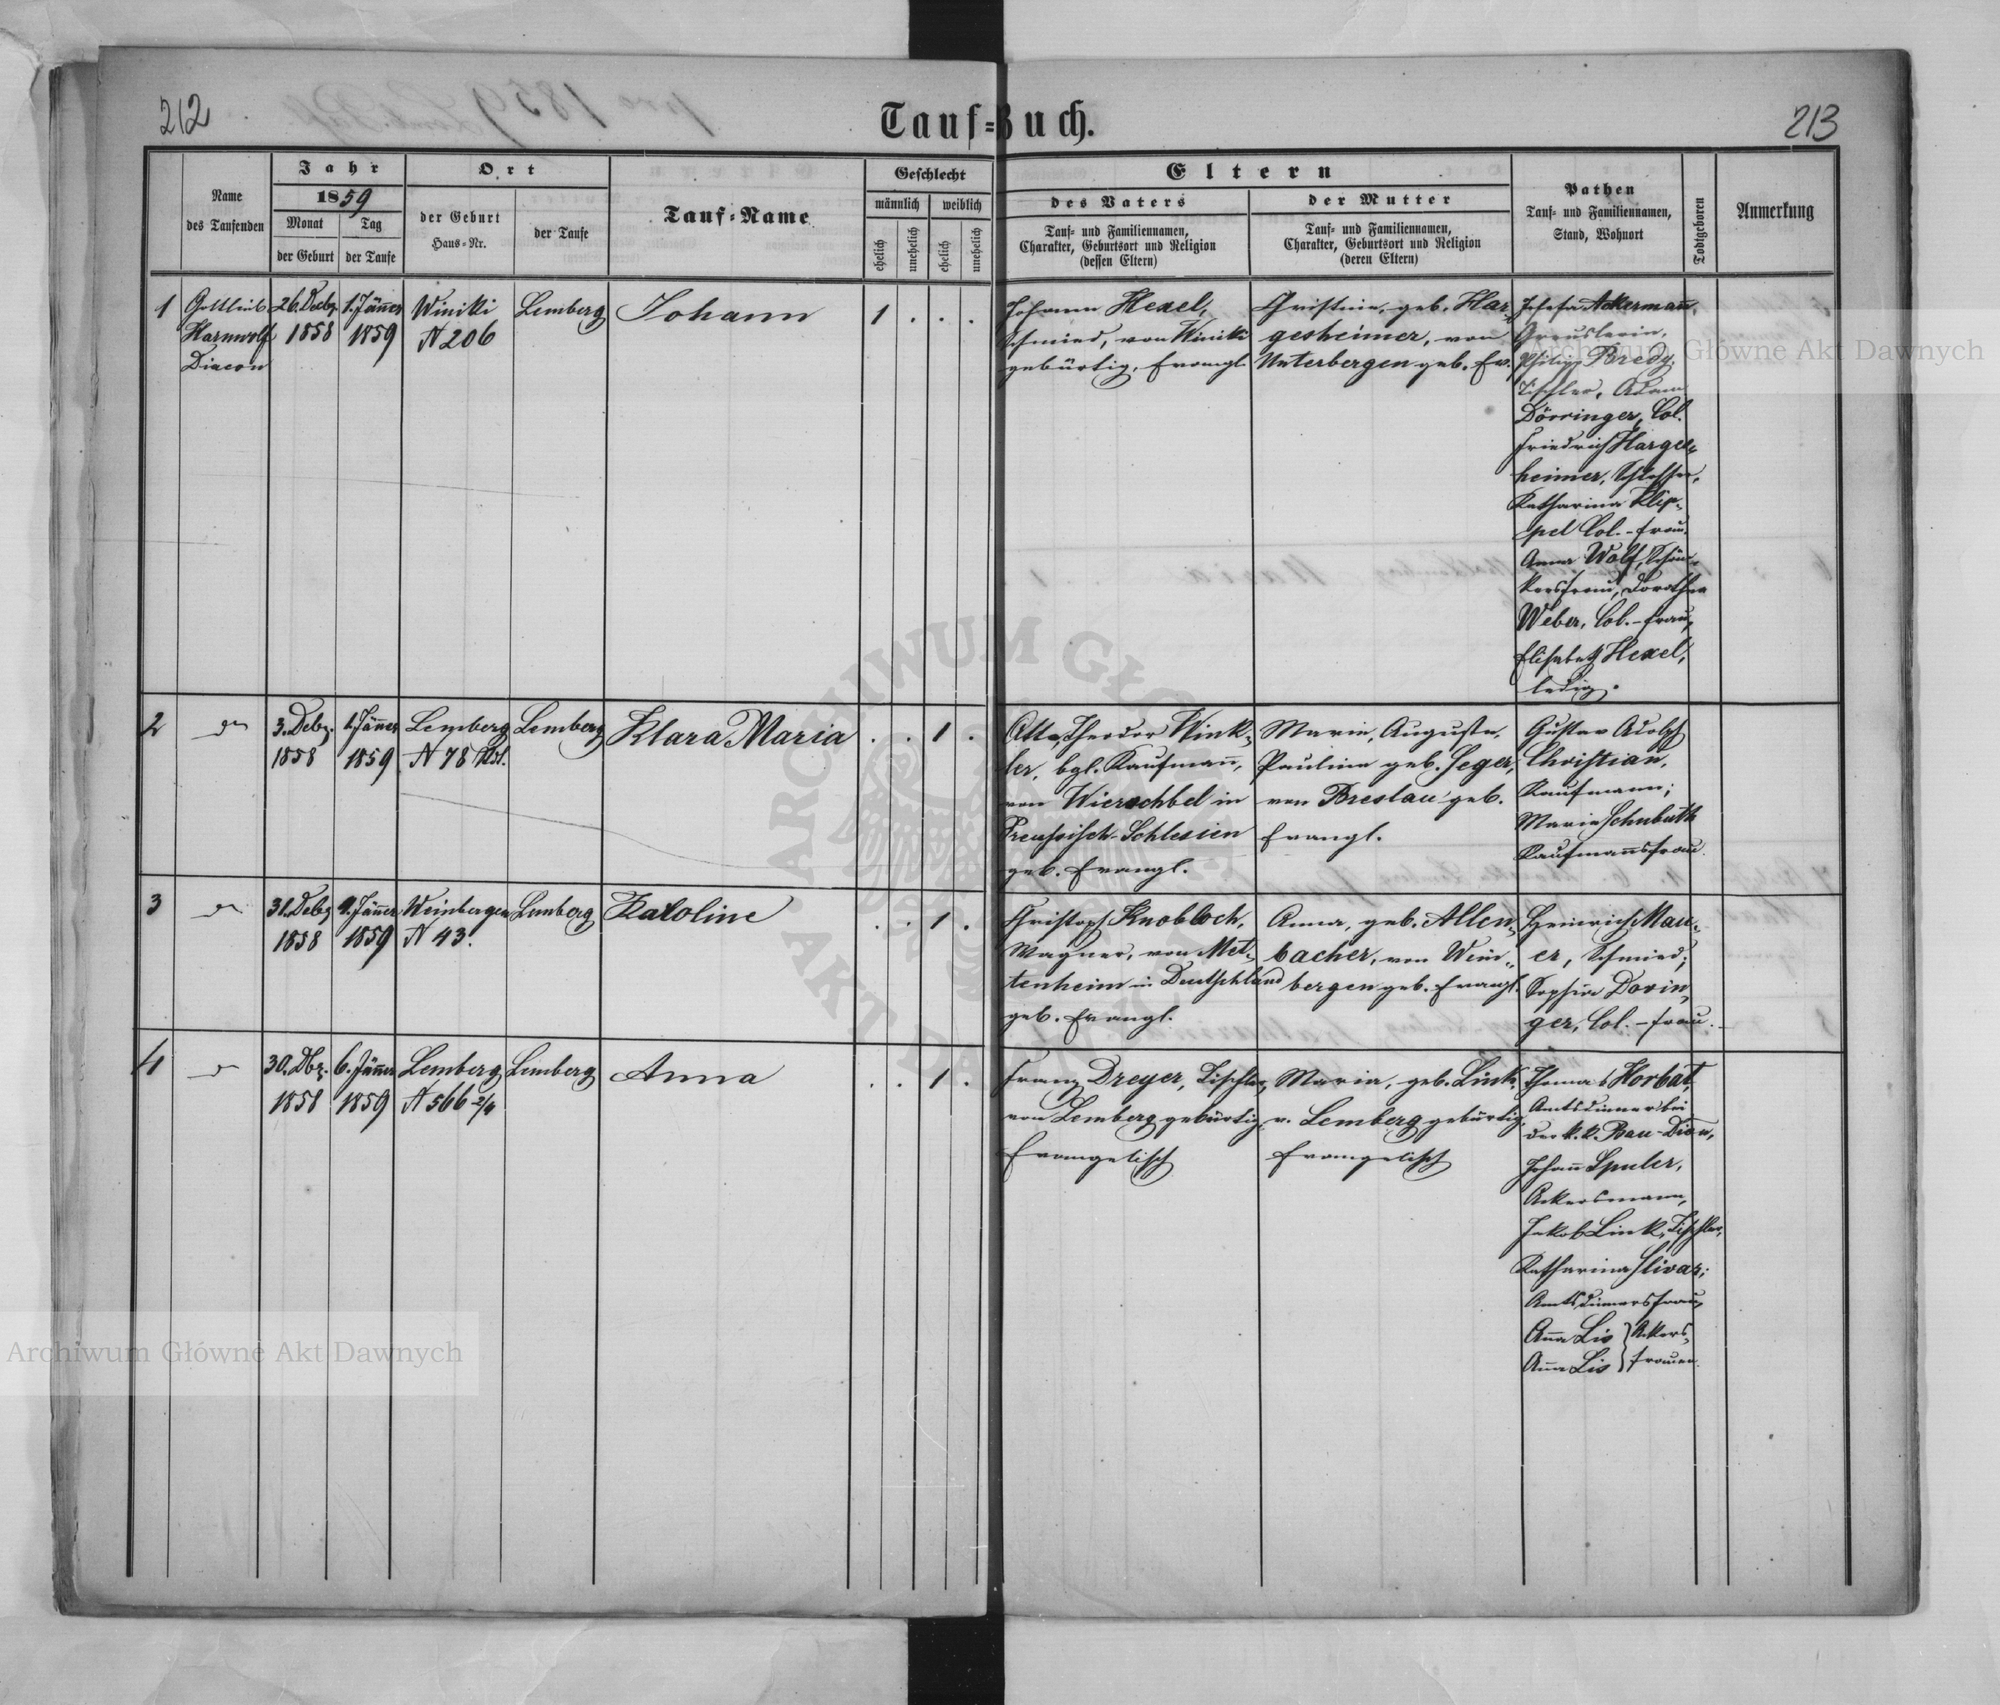 212
Tauf-Buch.
213
Name
des Taufenden
Jahr
1859
Monat
der Geburt
Tag
der Taufe
Ort
der Geburt
Haus-Nr.
der Taufe
Tauf-Name
Geschlecht
männlich
weiblich
ehelich
unehelich
ehelich
unehelich
Eltern
des Vaters
Tauf- und Familiennamen,
Charakter, Geburtsort und Religion
(dessen Eltern)
der Mutter
Tauf- und Familiennamen,
Charakter, Geburtsort und Religion
(deren Eltern)
Pathen
Tauf- und Familiennamen,
Stand, Wohnort
Todtgeboren
Anmerkung
1
Gottlieb
Harnwolf
Diacon
26. Decbr.
1858
1. Jänner
1859
Winiki
N 206
Lemberg
Johann
1 . . .
Johann Hexel,
Schmied, von Winiki
gebürtig, Evangl.
Christine, geb. Har-
gesheimer, von
Unterbergen geb. Ev.
Josefa Ackermann,
Philipp Bredy,
Tischler, Adam
Dörringer, Col.
Friedrich Harges-
heimer, Schlosser,
Katharina Klip-
pel Col.-frau.
Anna Wolf, Schän-
kersfrau, Dorothea
Weber, Col.-frau,
Elisabeth Hexel,
ledig.
2
do
3. Debr.
1858
1. Jänner
1859
Lemberg
N 78
Lemberg
Klara Maria
. . 1 .
Otto, Theodor Wink-
ler, bgl. Kaufmann,
von Wierschbel in
Preussisch-Schlesien
geb. Evangl.
Marie, Auguste,
Pauline geb. Seger,
von Breslau geb.
Evangl.
Gustav Adolph
Christian,
Kaufmann;
Marie Schubuth
Kaufmannsfrau.
3
do
31. Debr
1858
9. Jänner
1859
Weinbergen
N 43.
Lemberg
Karoline
. . 1 .
Christoph Knobloch,
Wagner, von Met-
tenheim in Deutschland
geb. Evangl.
Anna, geb. Allen-
bacher, von Wein-
bergen geb. Evangl.
Heinrich Mau-
er, Schmied;
Sophia Dorin-
ger, Col.-frau.
4
do
30. Dbr.
1858
6. Jänner
1859
Lemberg
N 566 2/4
Lemberg
Anna
. . 1 .
Franz Dreyer, Tischler,
von Lemberg gebürtig,
Evangelisch
Maria, geb. Link,
v. Lemberg gebürtig,
Evangelisch
Thomas Horbat,
Amtsdiener bei
der k.k. Bau-Dion,
Johann Spuler,
Ackersmann,
Jakob Link, Tischler,
Katharina Slivar;
Amtsdienersfrau
Anna Lis } Ackers-
Anna Lis } frauen.
Archiwum Główne Akt Dawnych
Archiwum Główne Akt Dawnych